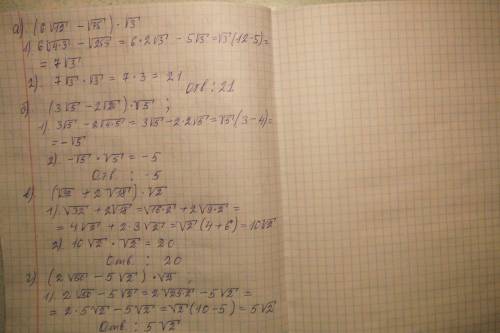 а). (6√12 - √75) · √3
1) 6√4·3 - √25·3 = 6·2√3 - 5√3 = √3(12-5) =
= 7√3
2). 7√3 · √3 = 7·3 = 21
Отв : 21
б) (3√5 - 2√20) · √5 ;
1) 3√5 - 2√4·5 = 3√5 - 2·2√5 = √5(3-4) =
= -√5
2) -√5 · √5 = -5
Отв : -5
в) (√32 + 2√18) · √2
1) √32 + 2√18 = √16·2 + 2√9·2 =
= 4√2 + 2·3√2 = √2(4+6) = 10√2
2) 10√2 · √2 = 20
Отв : 20
г) (2√50 - 5√2) · √2 ;
1) 2√50 - 5√2 = 2√25·2 - 5√2 =
= 2·5√2 - 5√2 = √2(10-5) = 5√2
Отв : 5√2